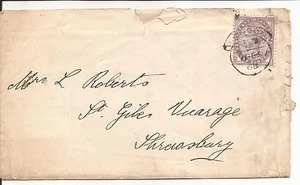 Mrs L Roberts
St. Giles Vicarage
Shrewsbury